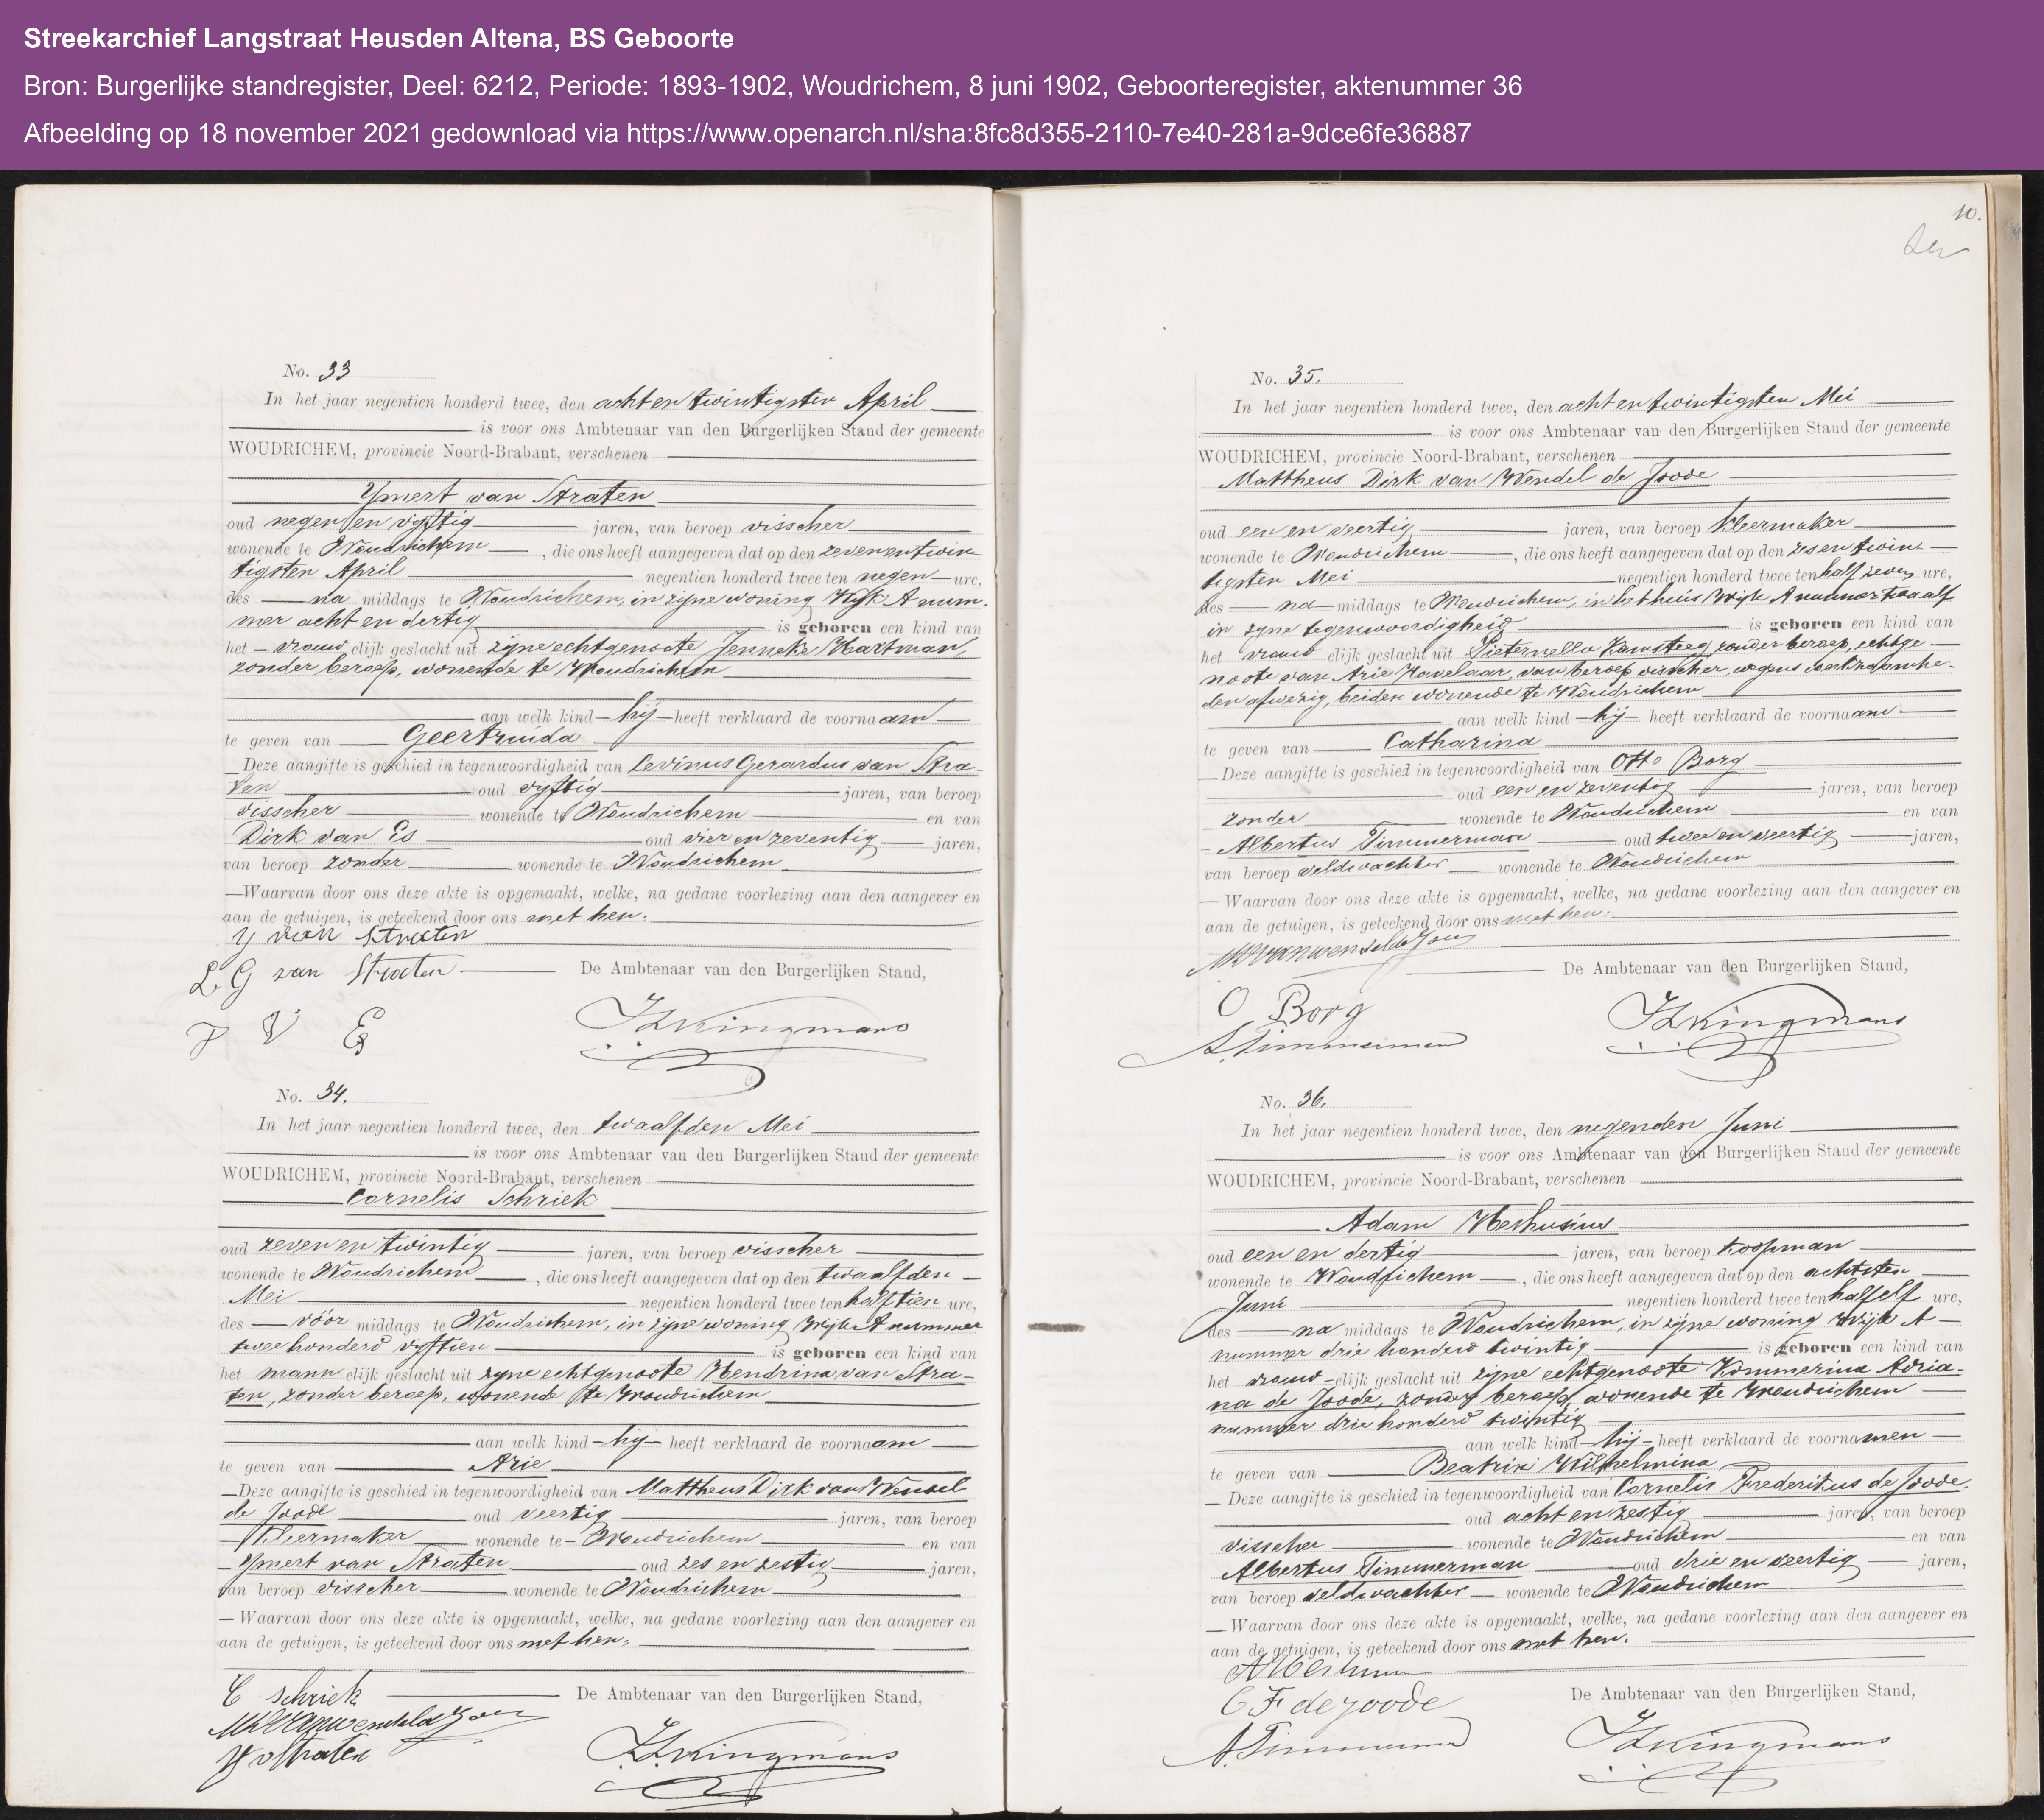 Streekarchief Langstraat Heusden Altena, BS Geboorte
Bron: Burgerlijke standregister, Deel: 6212, Periode: 1893-1902, Woudrichem, 8 juni 1902, Geboorteregister, aktenummer 36
Afbeelding op 18 november 2021 gedownload via https://www.openarch.nl/sha:8fc8d355-2110-7e40-281a-9dce6fe36887
No. 33
In het jaar negentien honderd twee, den acht en twintigsten April
is voor ons Ambtenaar van den Burgerlijken Stand der gemeente
WOUDRICHEM, provincie Noord-Brabant, verschenen
Ymert van Straten
oud negen en vijftig jaren, van beroep visscher
wonende te Woudrichem, die ons heeft aangegeven dat op den zeven en twin
tigsten April negentien honderd twee ten negen ure,
des na middags te Woudrichem, in zijne woning Wijk A num-
mer acht en dertig is geboren een kind van
het vrouwelijk geslacht uit zijne echtgenoote Jenneke Hartman,
zonder beroep, wonende te Woudrichem
aan welk kind hij heeft verklaard de voornaam
te geven van Geertruida
Deze aangifte is geschied in tegenwoordigheid van Levinus Gerardus van Stra-
ten oud vijftig jaren, van beroep
visscher wonende te Woudrichem en van
Dirk van Es oud vier en zeventig jaren,
van beroep zonder wonende te Woudrichem
Waarvan door ons deze akte is opgemaakt, welke, na gedane voorlezing aan den aangever en
aan de getuigen, is geteekend door ons met hen.
Y van Straten
L G van Straten De Ambtenaar van den Burgerlijken Stand,
V E
Kingmans
No. 34.
In het jaar negentien honderd twee, den twaalfden Mei
is voor ons Ambtenaar van den Burgerlijken Stand der gemeente
WOUDRICHEM, provincie Noord-Brabant, verschenen
Cornelis Schriek
oud zeven en twintig jaren, van beroep visscher
wonende te Woudrichem, die ons heeft aangegeven dat op den twaalfden
Mei negentien honderd twee ten half tien ure,
des vóór middags te Woudrichem, in zijne woning Wijk A nummer
twee honderd vijftien is geboren een kind van
het mannelijk geslacht uit zijne echtgenoote Hendrina van Stra-
ten, zonder beroep, wonende te Woudrichem
aan welk kind hij heeft verklaard de voornaam
te geven van Arie
Deze aangifte is geschied in tegenwoordigheid van Mattheus Dirk van Wendel
de Joode oud veertig jaren, van beroep
Kleermaker wonende te Woudrichem en van
Ymert van Straten oud zes en zestig jaren,
van beroep visscher wonende te Woudrichem
Waarvan door ons deze akte is opgemaakt, welke, na gedane voorlezing aan den aangever en
aan de getuigen, is geteekend door ons met hen.
C Schriek De Ambtenaar van den Burgerlijken Stand,
Y v Straten
Kingmans
10.
No. 35.
In het jaar negentien honderd twee, den acht en twintigsten Mei
is voor ons Ambtenaar van den Burgerlijken Stand der gemeente
WOUDRICHEM, provincie Noord-Brabant, verschenen
Mattheus Dirk van Wendel de Joode
oud een en veertig jaren, van beroep Kleermaker
wonende te Woudrichem, die ons heeft aangegeven dat op den zes en twin-
tigsten Mei negentien honderd twee ten half zeven ure,
des na middags te Woudrichem, in het huis Wijk A nummer twaalf
in zijne tegenwoordigheid is geboren een kind van
het vrouwelijk geslacht uit Pieternella Kamsteeg zonder beroep, echtge-
noote van Arie Havelaar, van beroep visscher, wegens werkzaamhe-
den afwezig, beiden wonende te Woudrichem
aan welk kind hij heeft verklaard de voornaam
te geven van Catharina
Deze aangifte is geschied in tegenwoordigheid van Otto Borg
oud een en zeventig jaren, van beroep
zonder wonende te Woudrichem en van
Albertus Timmerman oud twee en veertig jaren,
van beroep veldwachter wonende te Woudrichem
Waarvan door ons deze akte is opgemaakt, welke, na gedane voorlezing aan den aangever en
aan de getuigen, is geteekend door ons met hen.
De Ambtenaar van den Burgerlijken Stand,
O Borg
A Timmerman
Kingmans
No. 36.
In het jaar negentien honderd twee, den negenden Juni
is voor ons Ambtenaar van den Burgerlijken Stand der gemeente
WOUDRICHEM, provincie Noord-Brabant, verschenen
Adam Heshusius
oud een en dertig jaren, van beroep Koopman
wonende te Woudrichem, die ons heeft aangegeven dat op den achtsten
Juni negentien honderd twee ten half elf ure,
des na middags te Woudrichem, in zijne woning Wijk A
nummer drie honderd twintig is geboren een kind van
het vrouwelijk geslacht uit zijne echtgenoote Kommerina Adria-
na de Joode, zonder beroep, wonende te Woudrichem
nummer drie honderd twintig
aan welk kind hij heeft verklaard de voornamen
te geven van Beatrix Wilhelmina
Deze aangifte is geschied in tegenwoordigheid van Cornelis Frederikus de Joode
oud acht en zestig jaren, van beroep
visscher wonende te Woudrichem en van
Albertus Timmerman oud drie en veertig jaren,
van beroep veldwachter wonende te Woudrichem
Waarvan door ons deze akte is opgemaakt, welke, na gedane voorlezing aan den aangever en
aan de getuigen, is geteekend door ons met hen.
C F de Joode De Ambtenaar van den Burgerlijken Stand,
A Timmerman
Kingmans